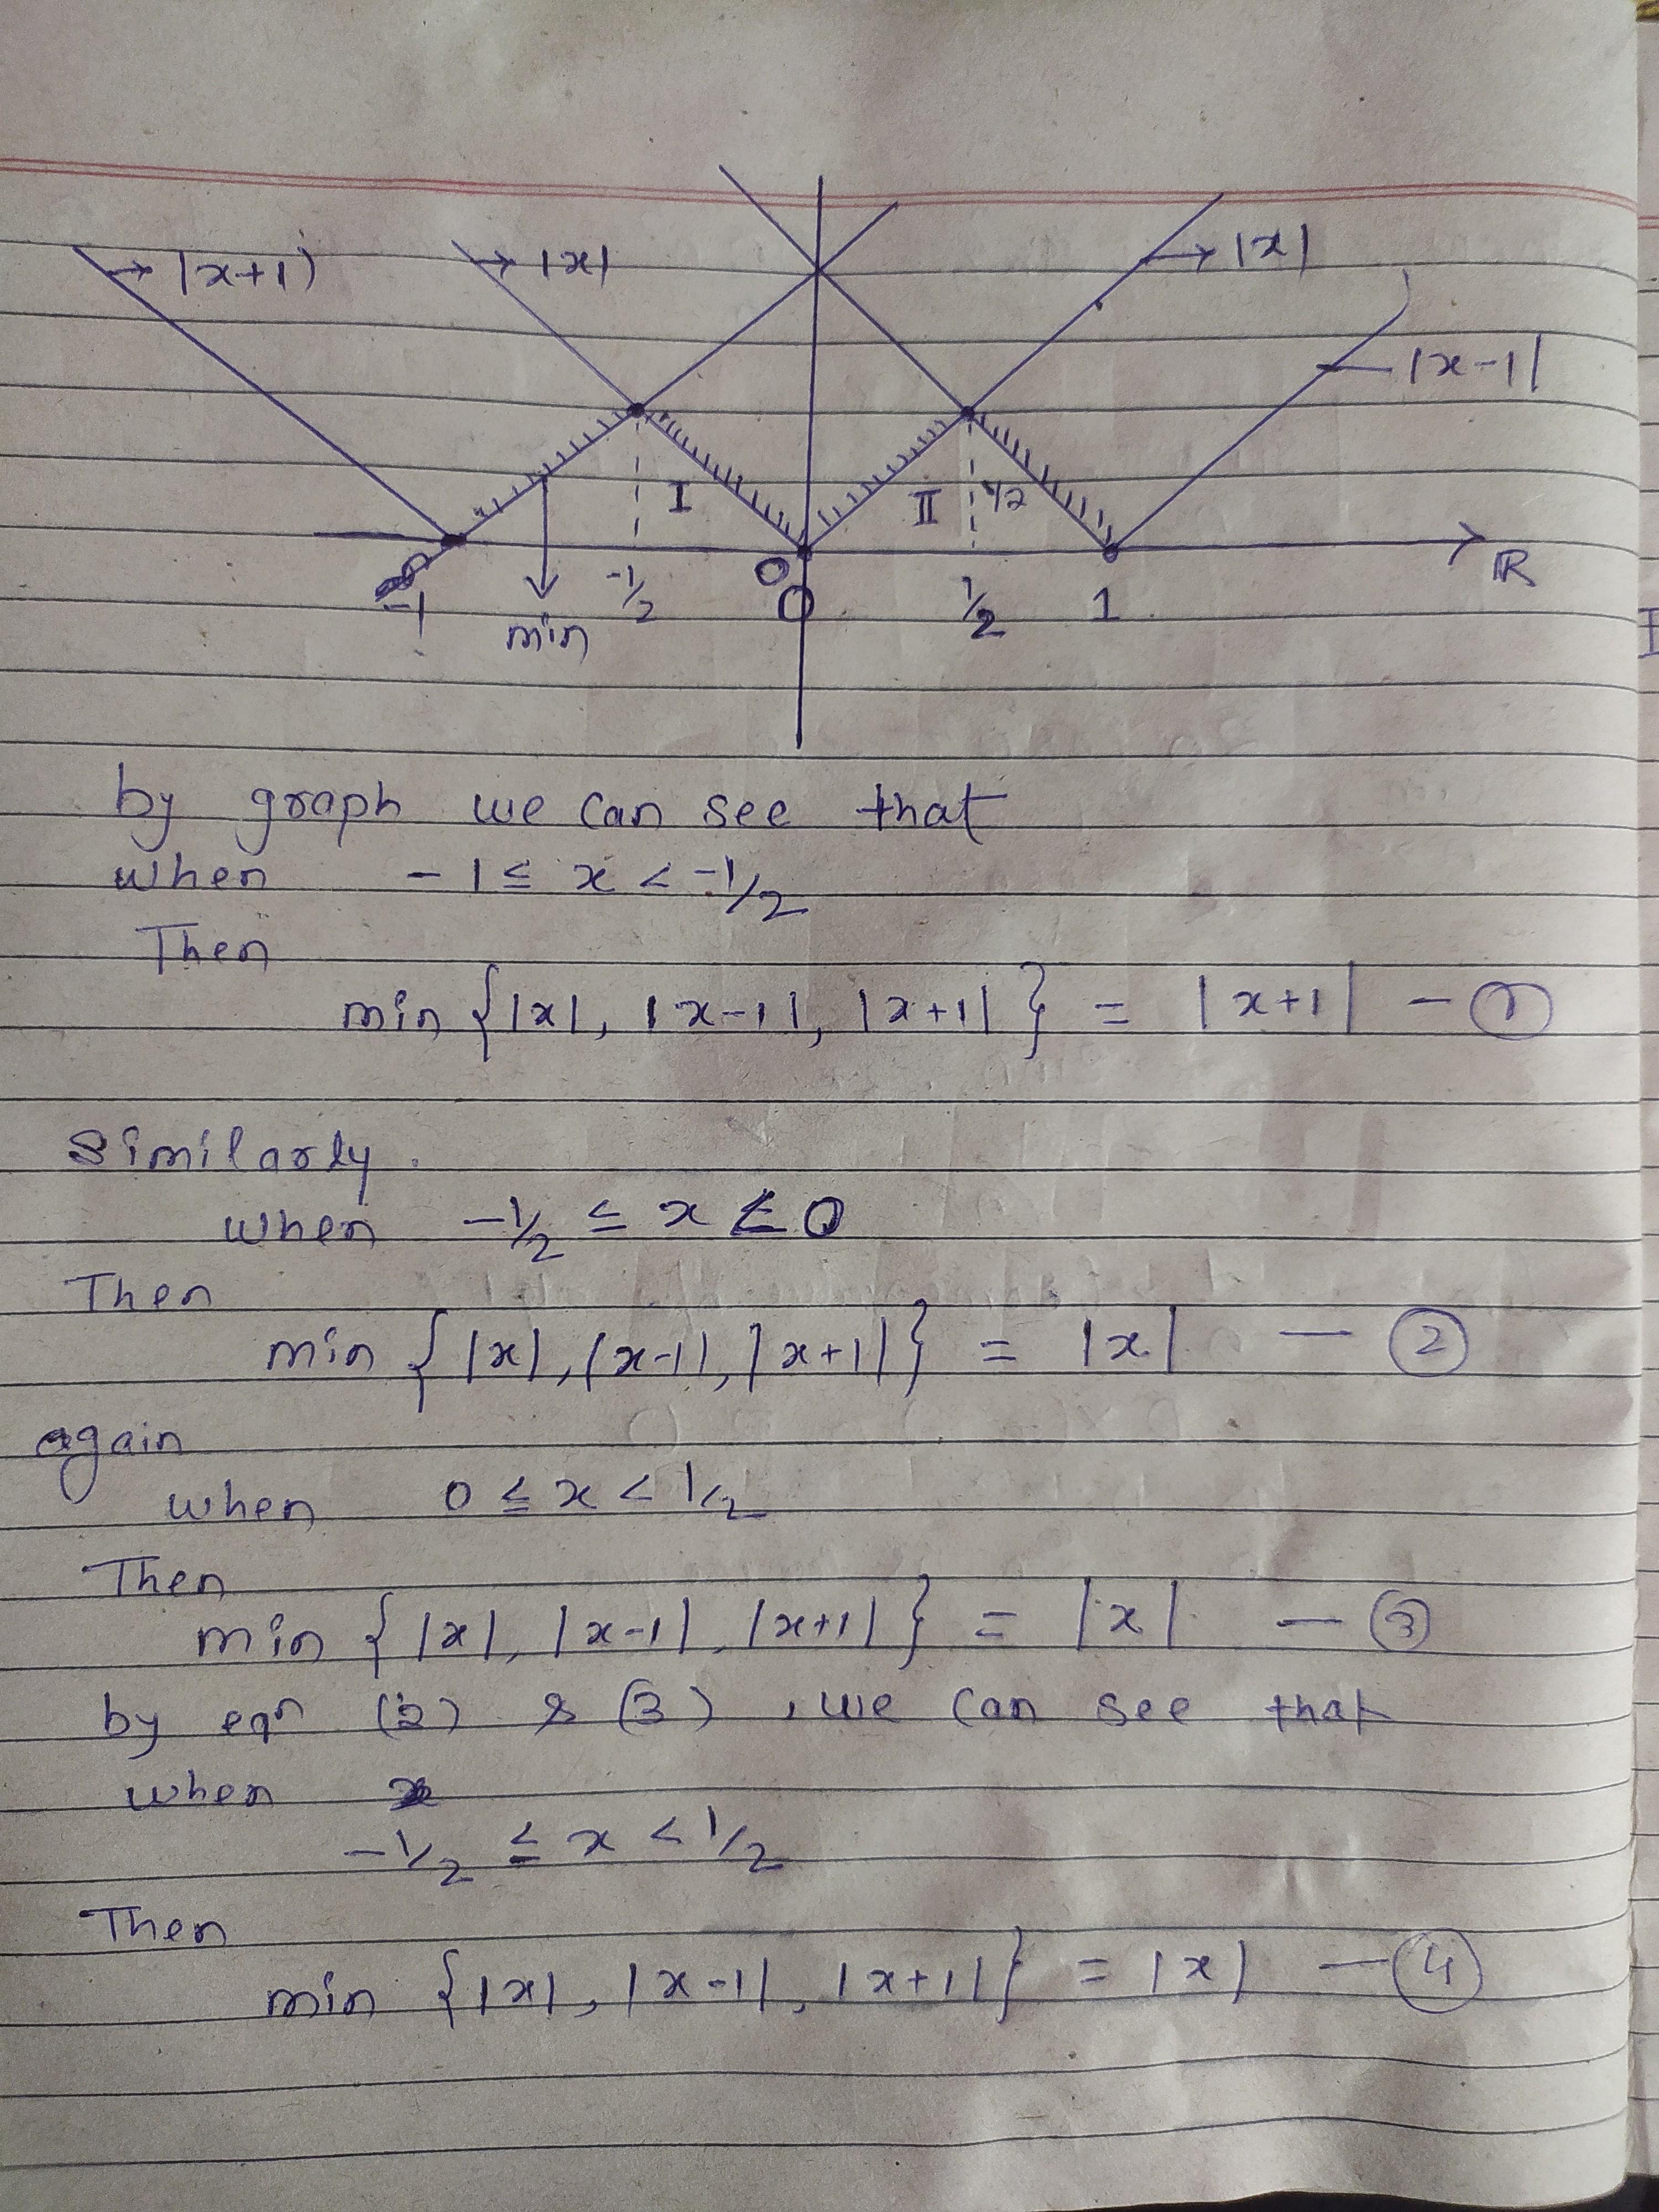 |x+1) |x| |x|
|x-1|
I II 1/2
-1 min -1/2 0 0 1/2 1 R
by graph we can see that
when -1 ≤ x < -1/2
Then
min {|x|, |x-1|, |x+1|} = |x+1| — ①
Similarly.
when -1/2 ≤ x ≤ 0
Then
min {|x|, |x-1|, |x+1|} = |x| — ②
again
when 0 ≤ x < 1/2
Then
min {|x|, |x-1|, |x+1|} = |x| — ③
by eqn (2) & (3), we can see that
when x
-1/2 ≤ x < 1/2
Then
min {|x|, |x-1|, |x+1|} = |x| — ④